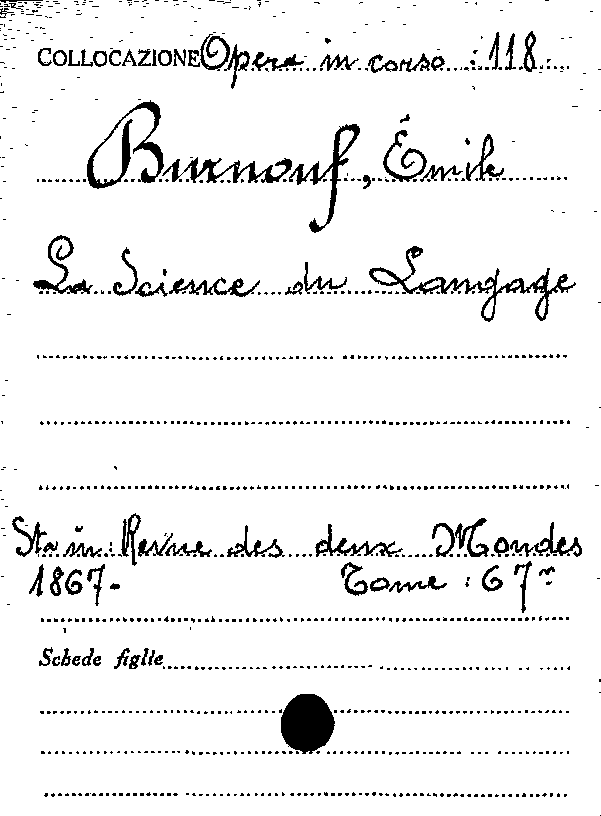 COLLOCAZIONE Opera in corso : 118.
Burnouf, Émile
La Science du Langage
Sta in: Revue des deux Mondes
1867- Tome : 67m
Schede figlie